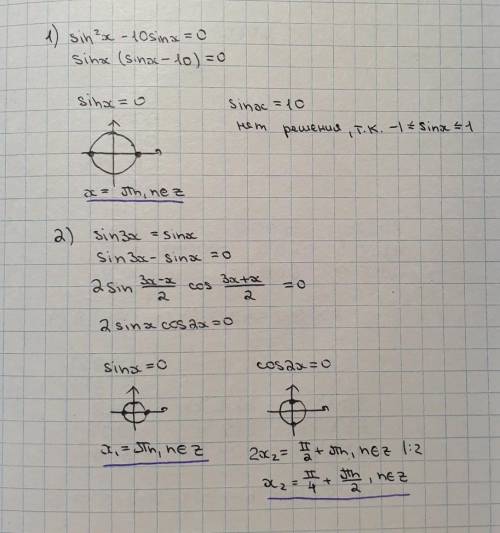 1) sin²x - 10sinx = 0
sinx (sinx - 10) = 0
sinx = 0 sinx = 10
нет решения, т.к. -1 ≤ sinx ≤ 1
x = πn, n∈z
2) sin3x = sinx
sin3x - sinx = 0
2 sin (3x-x)/2 cos (3x+x)/2 = 0
2 sinx cos2x = 0
sinx = 0 cos2x = 0
x₁ = πn, n∈z 2x₂ = π/2 + πn, n∈z |:2
x₂ = π/4 + πn/2, n∈z